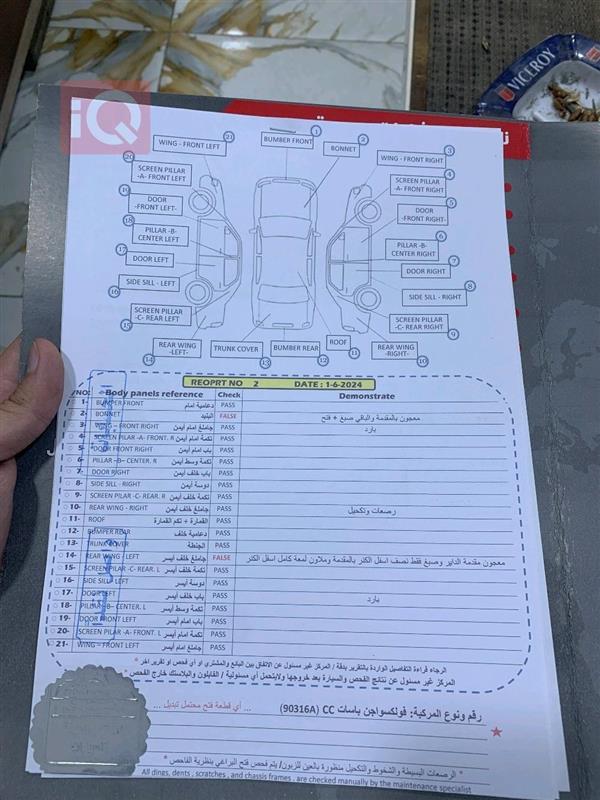 VICEROY
iQ
WING - FRONT LEFT 21
BUMBER FRONT 1
BONNET 2
WING - FRONT RIGHT 3
20 SCREEN PILLAR -A- FRONT LEFT
SCREEN PILLAR -A- FRONT RIGHT 4
19 DOOR -FRONT LEFT-
DOOR -FRONT RIGHT- 5
18 PILLAR -B- CENTER LEFT
PILLAR -B- CENTER RIGHT 6
17 DOOR LEFT
DOOR RIGHT 7
16 SIDE SILL - LEFT
SIDE SILL - RIGHT 8
15 SCREEN PILLAR -C- REAR LEFT
SCREEN PILLAR -C- REAR RIGHT 9
14 REAR WING -LEFT-
TRUNK COVER 13
BUMBER REAR 12
ROOF 11
REAR WING -RIGHT- 10
REOPRT NO 2 DATE : 1-6-2024
/NO: Body panels reference Check Demonstrate
1- BUMPER FRONT دعامية امام PASS
2- BONNET البنيد FALSE معجون بالمقدمة والباقي صبغ + فتح
3- WING - FRONT RIGHT جاملغ امام أيمن PASS بارد
4- SCREEN PILAR -A- FRONT. R تكمة امام أيمن PASS
5- DOOR FRONT RIGHT باب امام أيمن PASS
6- PILLAR –B– CENTER. R تكمة وسط أيمن PASS
7- DOOR RIGHT باب خلف أيمن PASS
8- SIDE SILL - RIGHT دوسة أيمن PASS
9- SCREEN PILAR -C- REAR. R تكمة خلف أيمن PASS
10- REAR WING - RIGHT جاملغ خلف أيمن PASS رصعات وتكحيل
11- ROOF القمارة + تكم القمارة PASS
12- BUMPER REAR دعامية خلف PASS
13- TRUNK COVER الجنطة PASS
14- REAR WING - LEFT جاملغ خلف أيسر FALSE معجون مقدمة الداير وصبغ فقط نصف اسفل الكتر بالمقدمة وملاون لمعة كامل اسفل الكتر
15- SCREEN PILAR -C- REAR. L تكمة خلف أيسر PASS
16- SIDE SILL - LEFT دوسة أيسر PASS
17- DOOR LEFT باب خلف أيسر PASS بارد
18- PILLAR –B– CENTER. L تكمة وسط أيسر PASS
19- DOOR FRONT LEFT باب امام أيسر PASS
20- SCREEN PILAR -A- FRONT. L تكمة امام أيسر PASS
21- WING – FRONT LEFT جاملغ امام أيسر PASS
* الرجاء قراءة التفاصيل الواردة بالتقرير بدقة / المركز غير مسئول عن الاتفاق بين البائع والمشتري او أي فحص او تقرير اخر *
* المركز غير مسئول عن نتائج الفحص والسيارة بعد خروجها ولايتحمل أي مسئولية / القايلون والبلاستك خارج الفحص *
رقم ونوع المركبة: فولكسواجن باسات CC (90316A) ... أي قطعة فتح محتمل تبديل ...
* الرصعات البسيطة والشخوط والتكحيل منظورة بالعين للزبون/ يتم فحص فتح البراغي بنظرية الفاحص *
All dings, dents , scratches , and chassis frames . are checked manually by the maintenance specialist